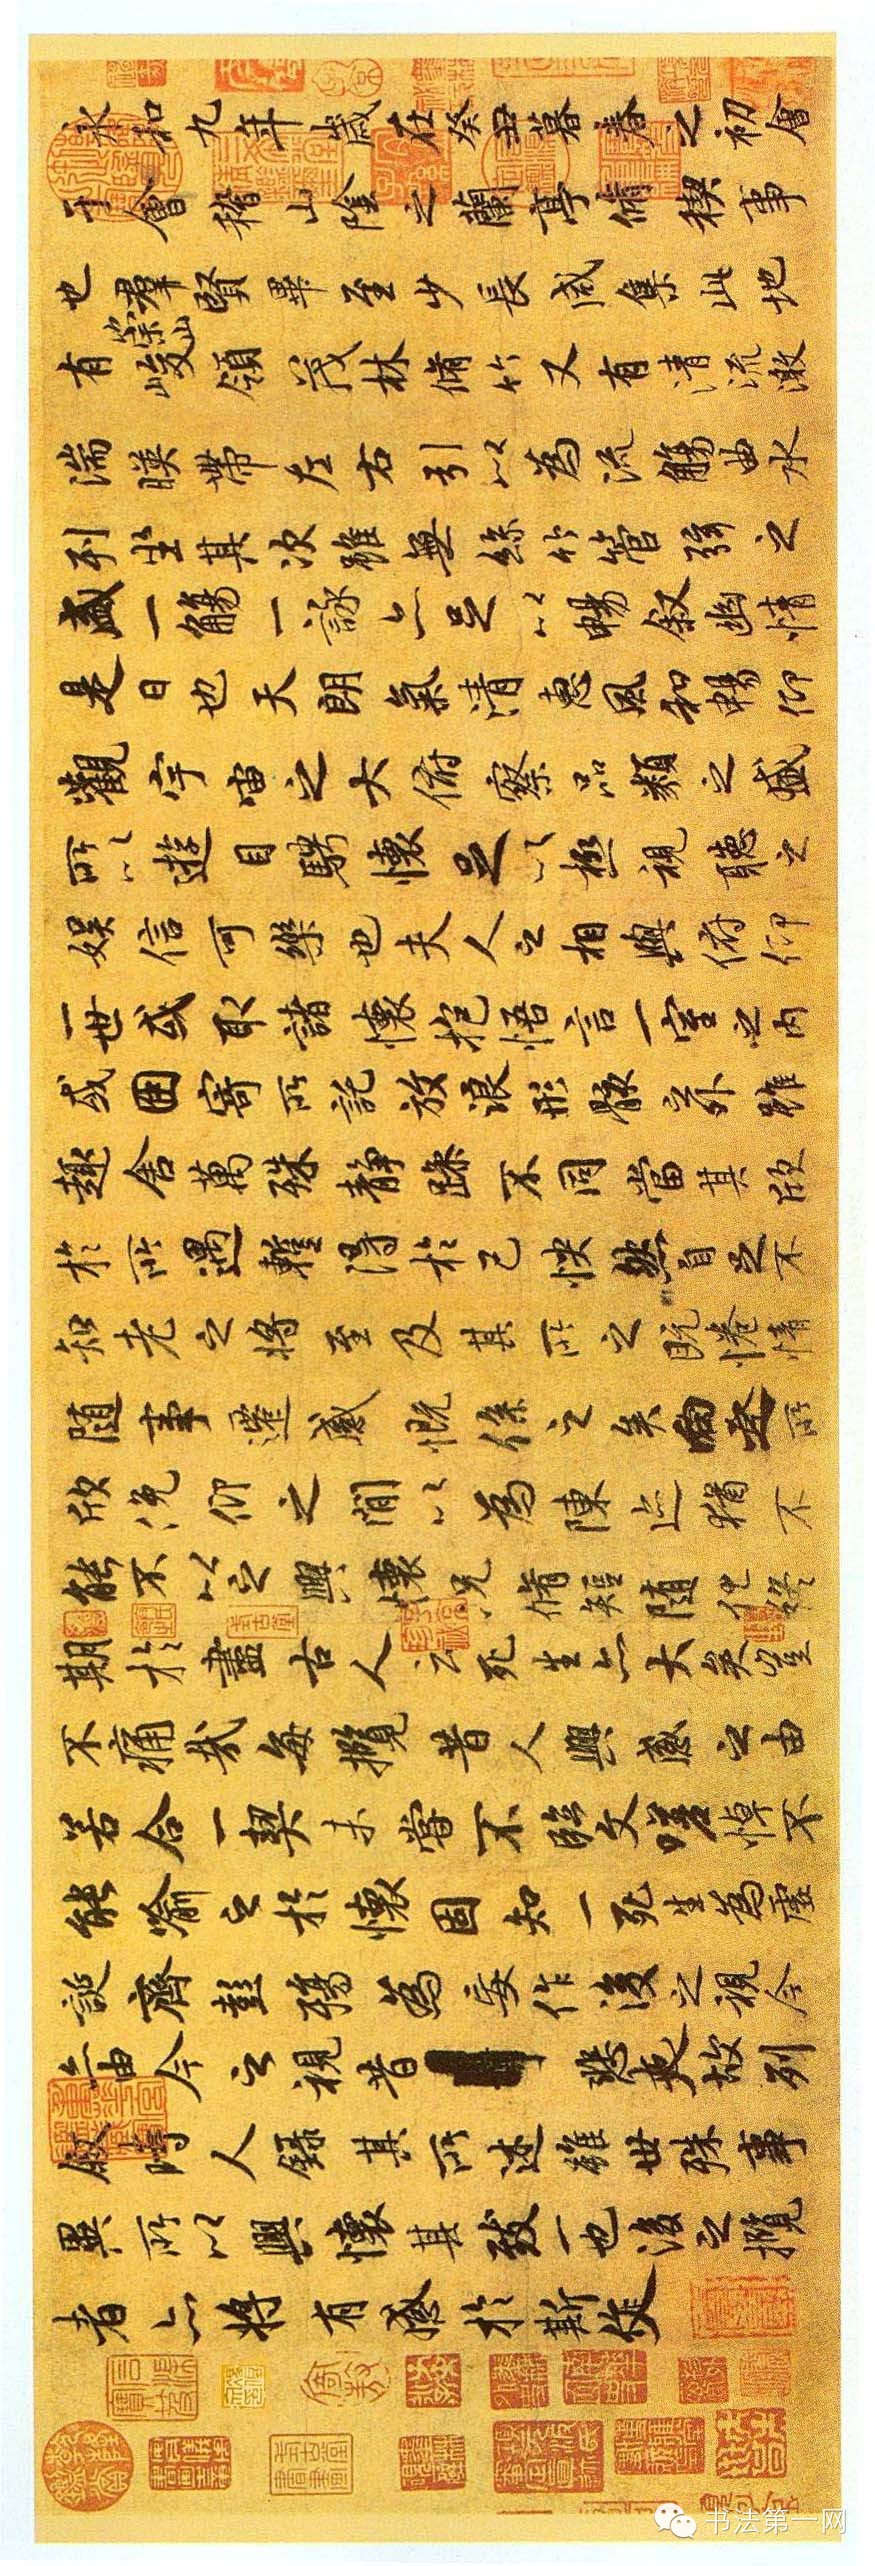 永和九年歲在癸丑暮春之初會
于會稽山陰之蘭亭脩禊事
也羣賢畢至少長咸集此地
有崇山峻領茂林脩竹又有清流激
湍暎帶左右引以為流觴曲水
列坐其次雖無絲竹管弦之
盛一觴一詠亦足以暢敘幽情
是日也天朗氣清惠風和暢仰
觀宇宙之大俯察品類之盛
所以遊目騁懷足以極視聽之
娛信可樂也夫人之相與俯仰
一世或取諸懷抱悟言一室之內
或因寄所託放浪形骸之外雖
趣舍萬殊靜躁不同當其欣
於所遇輒得於己怏然自足不
知老之將至及其所之既惓情
隨事遷感慨係之矣向之所
欣俛仰之閒以為陳迹猶不
能不以之興懷況脩短隨化終
期於盡古人云死生亦大矣豈
不痛哉每攬昔人興感之由
若合一契未嘗不臨文嗟悼不
能喻之於懷固知一死生為虛
誕齊彭殤為妄作後之視今
亦由今之視昔悲夫故列
敘時人錄其所述雖世殊事
異所以興懷其致一也後之攬
者亦將有感於斯文
書法第一网